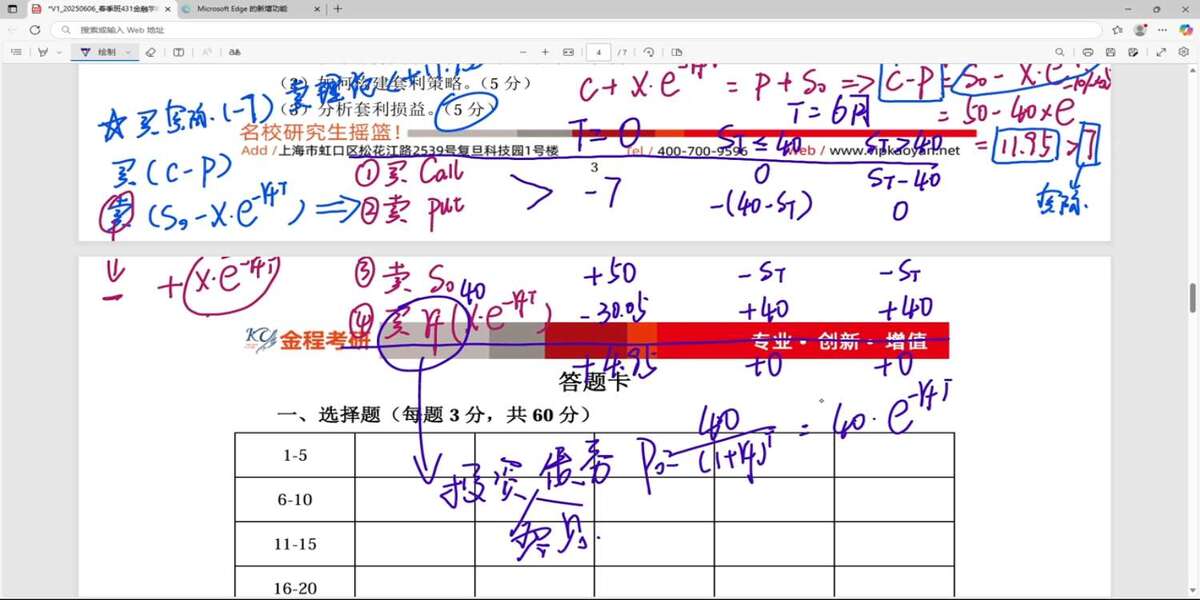 *V1_20250606_春季班431金融学
Microsoft Edge 的新增功能
搜索或输入 Web 地址
绘制
4 / 7
如何构建套利策略。(5 分)
分析套利损益。(5 分)
C + X·e^{-rfT} = P + S₀ ⟹ C-P = S₀ - X·e
T = 6月
= 50 - 40×e
= 11.95 > 7
实际.
名校研究生摇篮！
Add / 上海市虹口区松花江路2539号复旦科技园1号楼 Tel / 400-700-9596 Web / www.mpkaoyan.net
3
☆ 买实际.(-7)
买 (C-P)
卖 (S₀ - X·e^{-rfT}) ⟹
+ X·e^{-rfT}
T=0 S_T ≤ 40 S_T > 40
① 买 Call 0 S_T - 40
② 卖 put > -7 -(40-S_T) 0
③ 卖 S₀ +50 -S_T -S_T
④ 买 rf (X·e^{-rfT}) 40 -30.05 +40 +40
+4.95 +0 +0
金程考研
专业·创新·增值
答题卡
一、选择题（每题 3 分，共 60 分）
1-5
6-10
11-15
16-20
投资 债券 P₀ = 40/(1+rf)^T = 40·e^{-rfT}
零息.